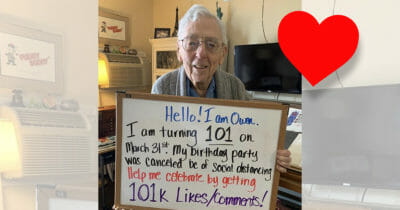 Hello! I am
I am turning 101 on
March 31st My birthday party
was canceled bc of social distancing
Help me celebrate by getting
101K Likes/Comments!